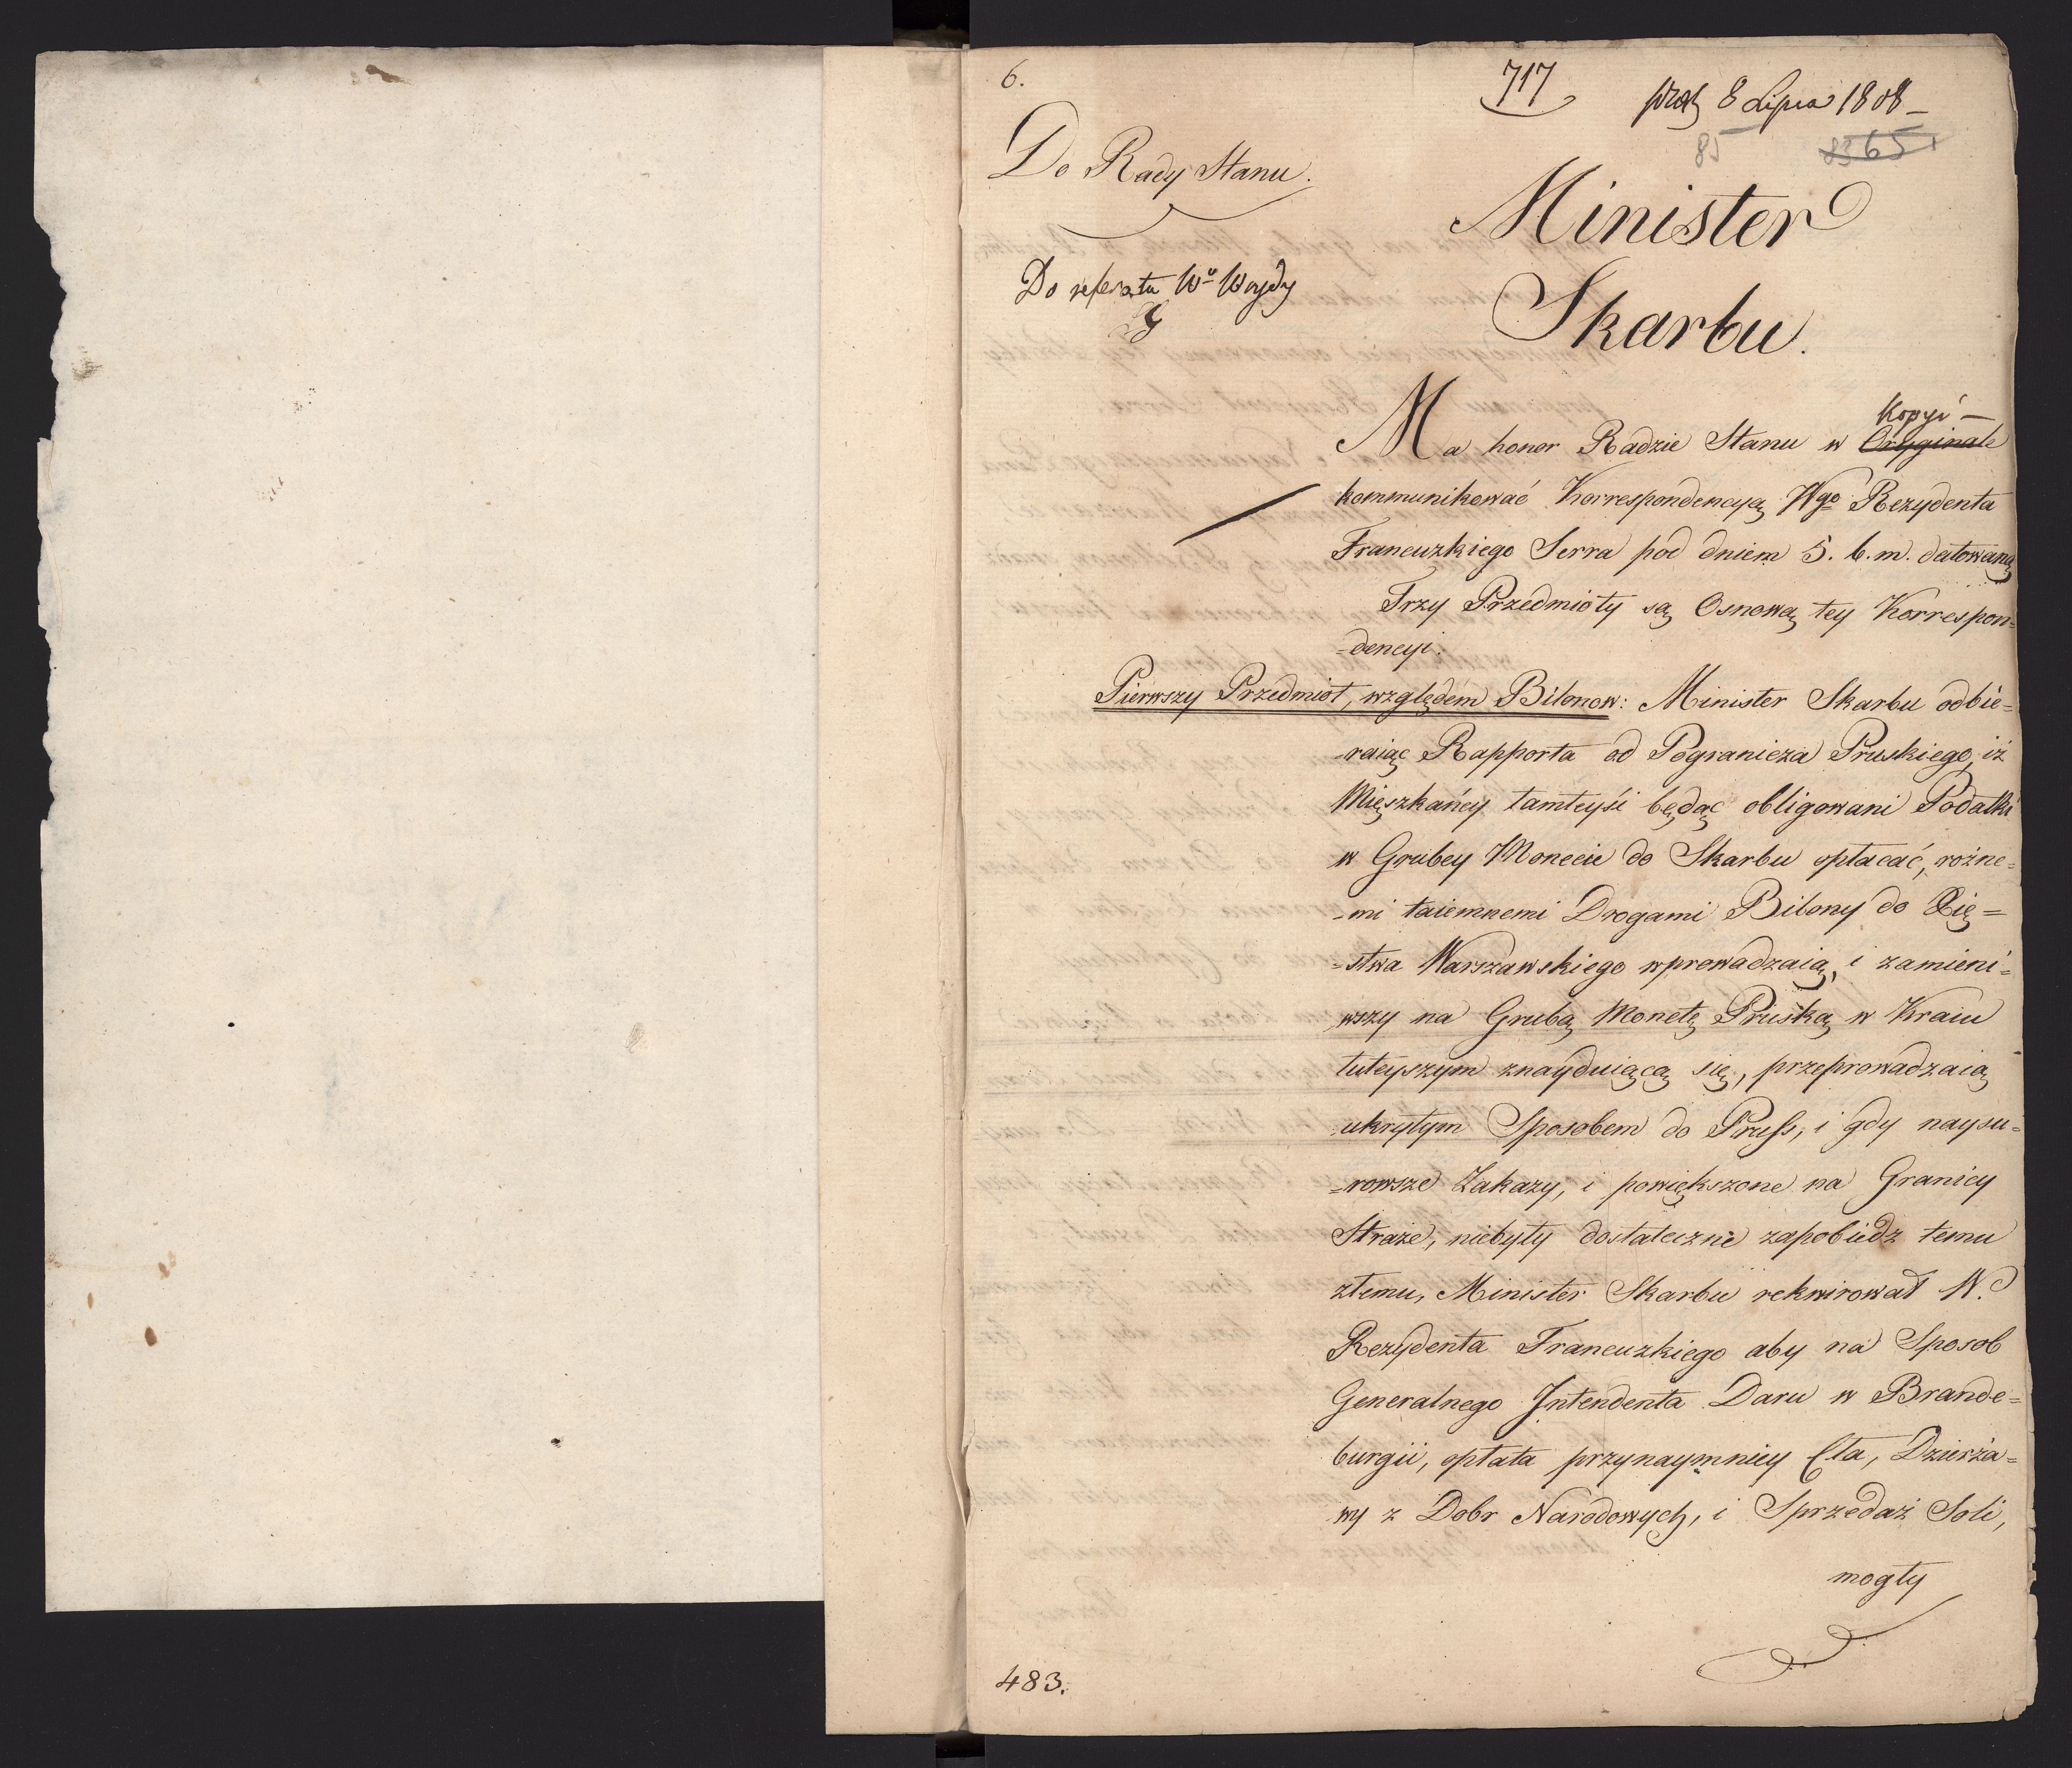 6.
717
8 Lipca 1808 –
85
8365
Do Rady Stanu.
Minister
Skarbu.
Do referatu Wo Woydy
Kopyi –
Ma honor Radzie Stanu w Oryginale
kommunikować Korrespondencyą Wgo Rezydenta
Francuzkiego Serra pod dniem 5. b. m. datowaną
Trzy Przedmioty są Osnową tey Korrespon=
=dencyi.
Pierwszy Przedmiot, względem Bilonow: Minister Skarbu odbie=
=raiąc Rapporta od Pogranicza Pruskiego, iż
Mięszkańcy tamteyśi będąc obligowani Podatki
w Grubey Monecie do Skarbu opłacać, rożne=
=mi taiemnemi Drogami Bilony do Xię=
=stwa Warszawskiego wprowadzaią, i zamieni=
wszy na Grubą Monetę Pruską w Kraiu
tuteyszym znayduiącą się, przeprowadzaią
ukrytym Sposobem do Pruss, i gdy naysu=
=rowsze Zakazy, i powiększone na Granicy
Straże, niebyły dostateczne zapobiedz temu
złemu, Minister Skarbu rekwirował W.
Rezydenta Francuzkiego aby na Sposob
Generalnego Intendenta Daru w Brande=
burgii, opłata przynaymniey Cła, Dzierża=
wy z Dobr Narodowych, i Sprzedaż Soli,
mogły
483.